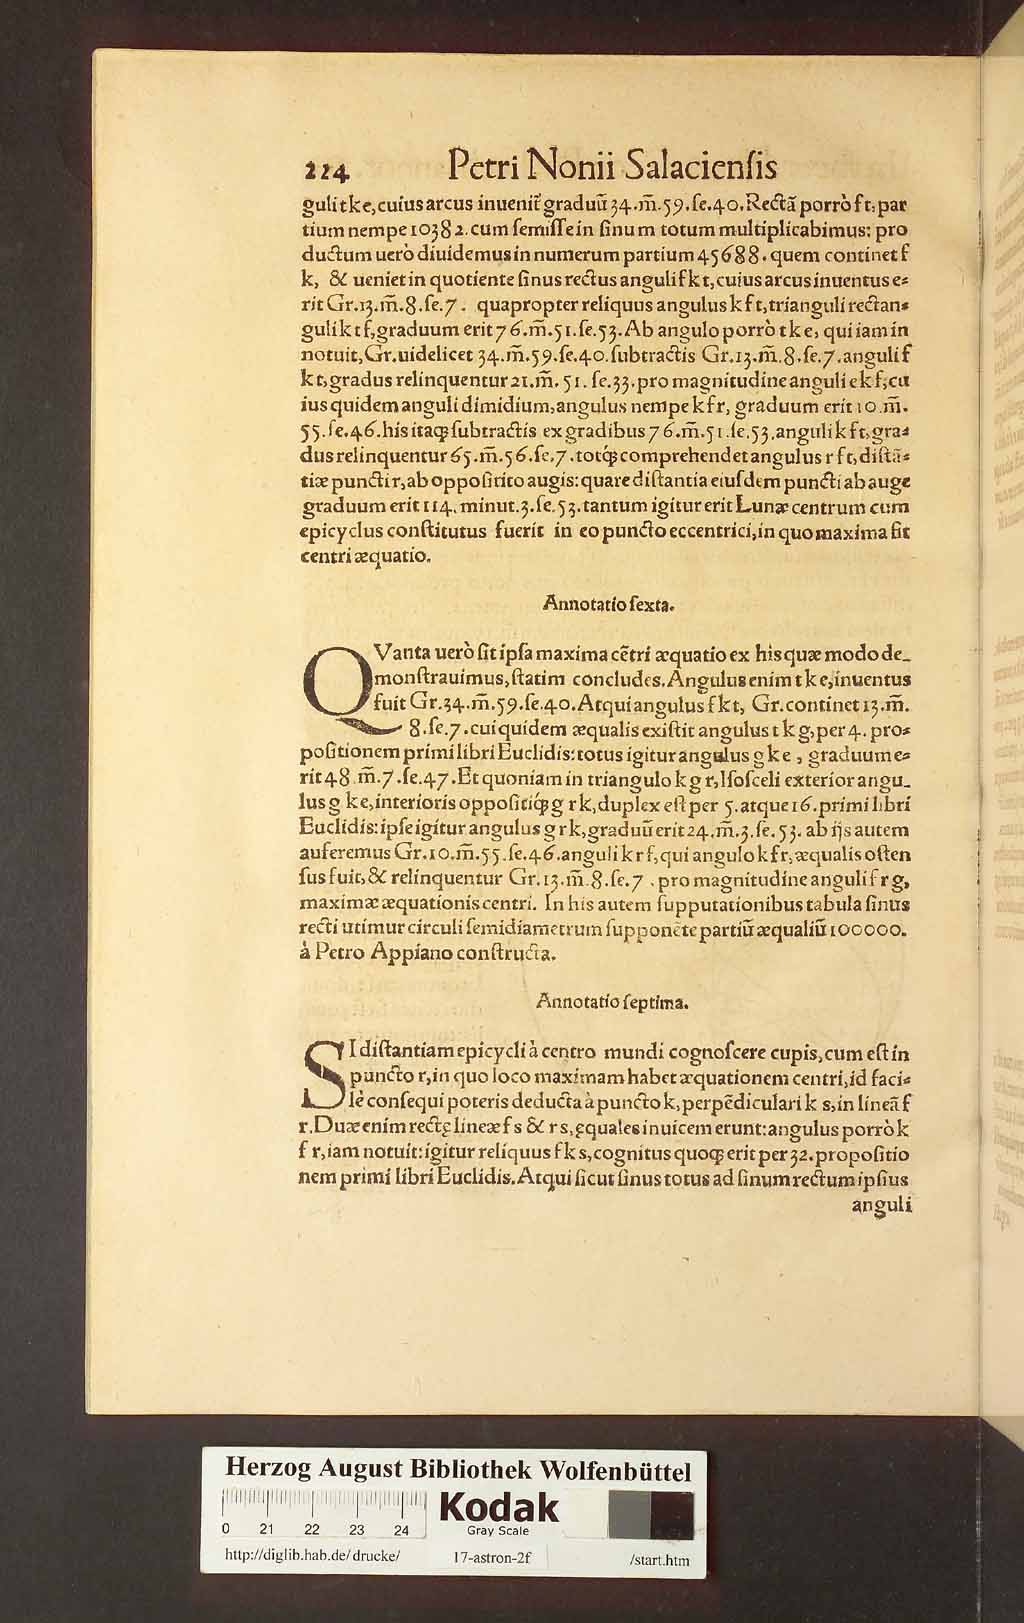 224 Petri Nonii Salacienſis
guli t k e, cuius arcus inuenit̃ graduũ 34. m̃. 59. ſe. 40. Rectã porrò f t, par
tium nempe 10382. cum ſemiſſe in ſinum totum multiplicabimus: pro
ductum uerò diuidemus in numerum partium 45688. quem continet f
k, & ueniet in quotiente ſinus rectus anguli f k t, cuius arcus inuentus e⸗
rit Gr. 13. m̃. 8. ſe. 7. quapropter reliquus angulus k f t, trianguli rectan⸗
guli k t f, graduum erit 76. m̃. 51. ſe. 53. Ab angulo porrò t k e, qui iam in
notuit, Gr. uidelicet 34. m̃. 59. ſe. 40. ſubtractis Gr. 13. m̃. 8. ſe. 7. anguli f
k t, gradus relinquentur 21. m̃. 51. ſe. 33. pro magnitudine anguli e k f, cu
ius quidem anguli dimidium, angulus nempe k f r, graduum erit 10. m̃.
55. ſe. 46. his itaqꝫ ſubtractis ex gradibus 76. m̃. 51. ſe. 53. anguli k f t, gra⸗
dus relinquentur 65. m̃. 56. ſe. 7. totqꝫ comprehendet angulus r f t, diſtã⸗
tiæ puncti r, ab oppoſitito augis: quare diſtantia eiuſdem puncti ab auge
graduum erit 114. minut. 3. ſe. 53. tantum igitur erit Lunæ centrum cum
epicyclus conſtitutus fuerit in eo puncto eccentrici, in quo maxima fit
centri æquatio.
Annotatio ſexta.
QVanta uerò ſit ipſa maxima cẽtri æquatio ex his quæ modo de_
monſtrauimus, ſtatim concludes. Angulus enim t k e, inuentus
fuit Gr. 34. m̃. 59. ſe. 40. Atqui angulus f k t, Gr. continet 13. m̃.
8. ſe. 7. cui quidem æqualis exiſtit angulus t k g, per 4. pro⸗
poſitionem primi libri Euclidis: totus igitur angulus g k e, graduum e⸗
rit 48. m̃. 7. ſe. 47. Et quoniam in triangulo k g r, Iſoſceli exterior angu_
lus g k e, interioris oppoſitiqꝫ g r k, duplex eſt per 5. atque 16. primi libri
Euclidis: ipſe igitur angulus g r k, graduũ erit 24. m̃. 3. ſe. 53. ab ijs autem
auferemus Gr. 10. m̃. 55. ſe. 46. anguli k r f, qui angulo k f r, æqualis oſten
ſus fuit, & relinquentur Gr. 13. m̃. 8. ſe. 7. pro magnitudine anguli f r g,
maximæ æquationis centri. In his autem ſupputationibus tabula ſinus
recti utimur circuli ſemidiametrum ſupponẽte partiũ æqualiũ 100000.
à Petro Appiano conſtructa.
Annotatio ſeptima.
SI diſtantiam epicycli à centro mundi cognoſcere cupis, cum eſt in
puncto r, in quo loco maximam habet æquationem centri, id faci⸗
lè conſequi poteris deducta à puncto k, perpẽdiculari k s, in lineã f
r. Duæ enim rectę lineæ f s & r s, ęquales inuicem erunt: angulus porrò k
f r, iam notuit: igitur reliquus f k s, cognitus quoqꝫ erit per 32. propoſitio
nem primi libri Euclidis. Atqui ſicut ſinus totus ad ſinum rectum ipſius
anguli
Herzog August Bibliothek Wolfenbüttel
Kodak
Gray Scale
0 21 22 23 24
http://diglib.hab.de/drucke/ 17-astron-2f /start.htm